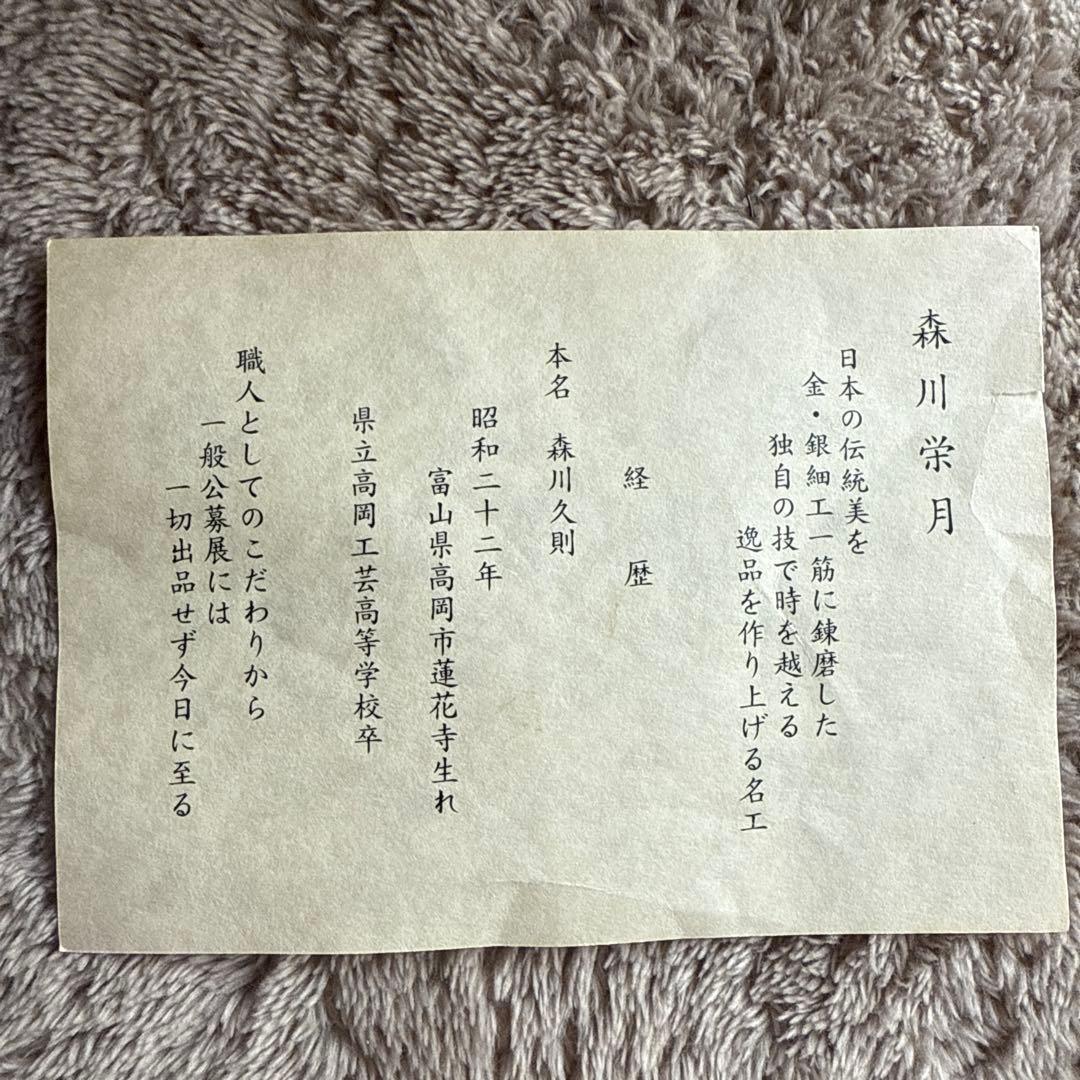 森川栄月
日本の伝統美を
金・銀細工一筋に錬磨した
独自の技で時を越える
逸品を作り上げる名工
経歴
本名 森川久則
昭和二十二年
富山県高岡市蓮花寺生れ
県立高岡工芸高等学校卒
職人としてのこだわりから
一般公募展には
一切出品せず今日に至る